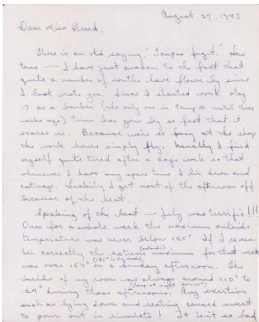 August 27, 1943
Dear Miss Breed,
There is an old saying "Tempus fugit." How
true — I have just awaken to the fact that
quite a number of months have flown by since
I last wrote you. Since I started work May
17 as a barber (the only one in Camp 3 until three
weeks ago) time has gone by so fast that it
scares me. Because we're so busy at the shop
the work hours simply fly. Usually I find
myself quite tired after a days work so that
whenever I have any spare time I lie down and
catnap. Luckily I get most of the afternoons off
because of the heat.
Speaking of the heat — July was terrific!!!
Once for a whole week the maximum outside
temperature was never below 130°. If I remem
ber correctly the extreme maximum for that week
was over 150° on a Sunday afternoon. The
inside of my room was always around 110° to
120° during those afternoons. Any exertion
such as lying down and resting caused sweat
to pour out in rivulets! It isn't so bad